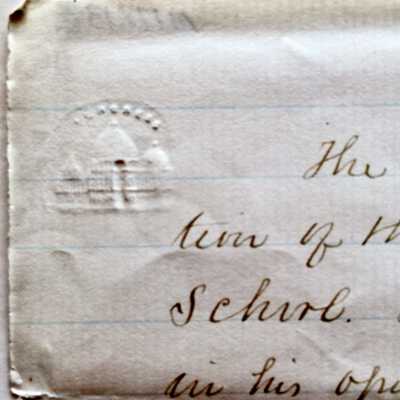 The
tion of th
School.
in his ope